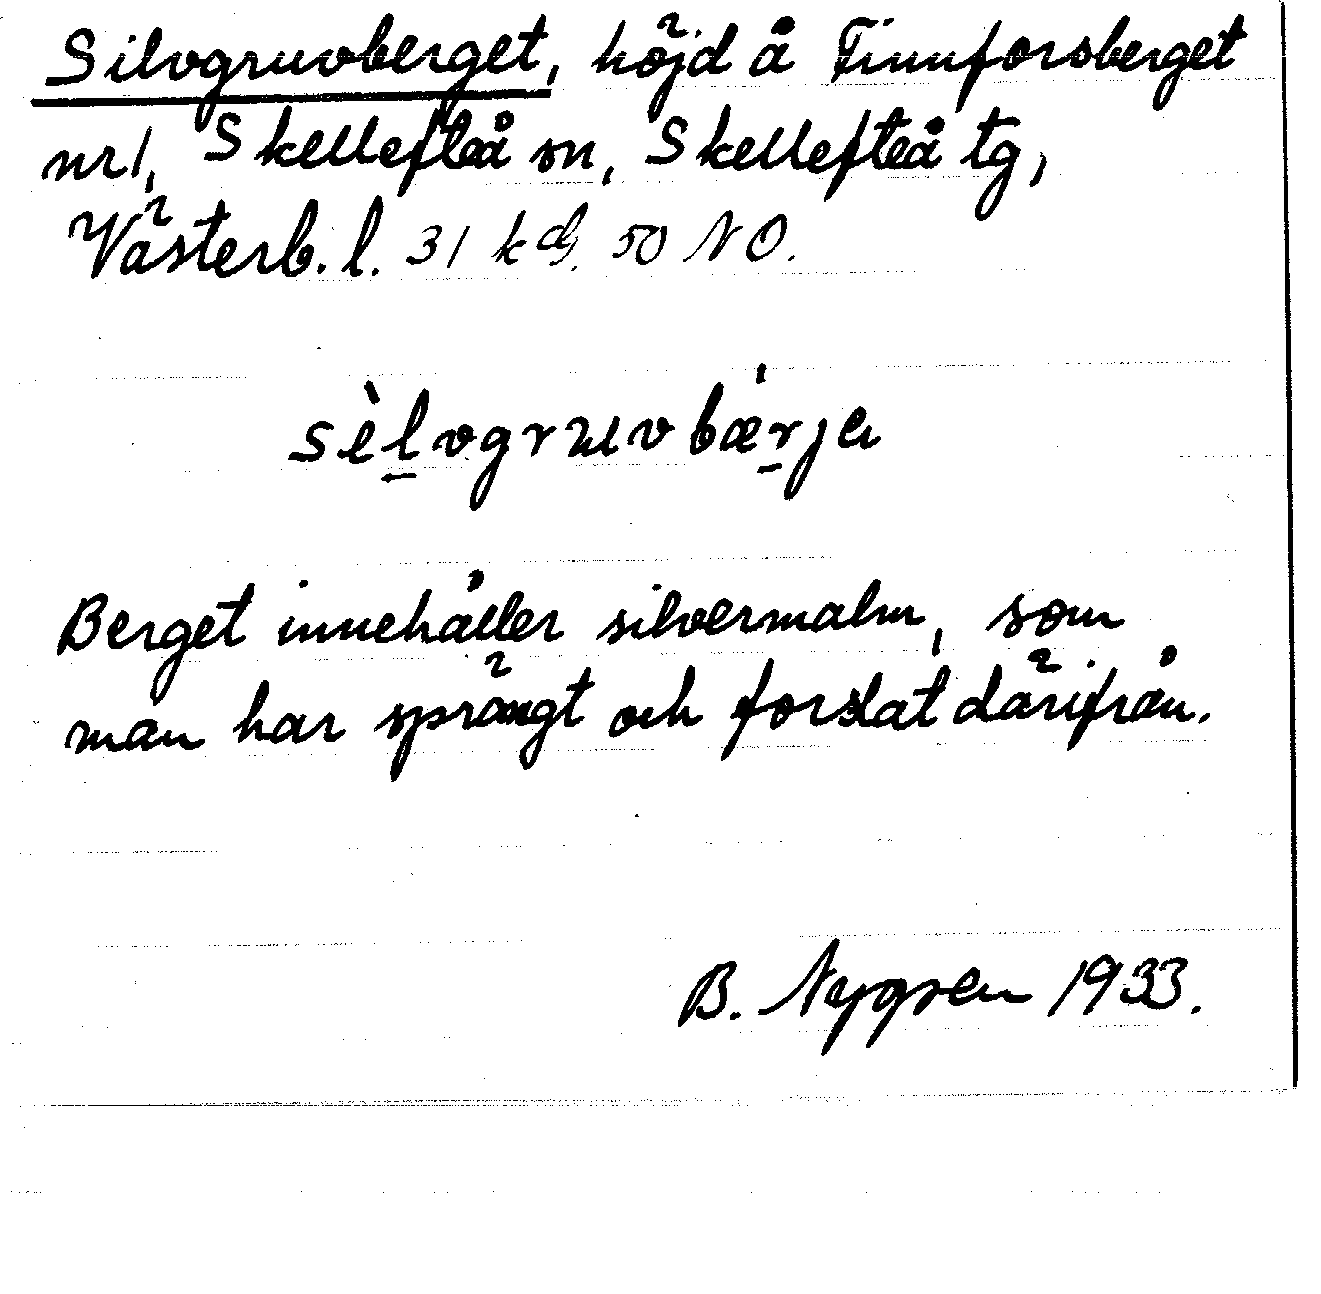 Silvgruvberget, höjd å Finnforsberget
nr 1, Skellefteå sn, Skellefteå tg,
Västerb. l. 31 kd. 50 NO.
sèlvgruvbærja
Berget innehåller silvermalm, som
man har sprängt och forslat därifrån.
B. Nygren 1933.